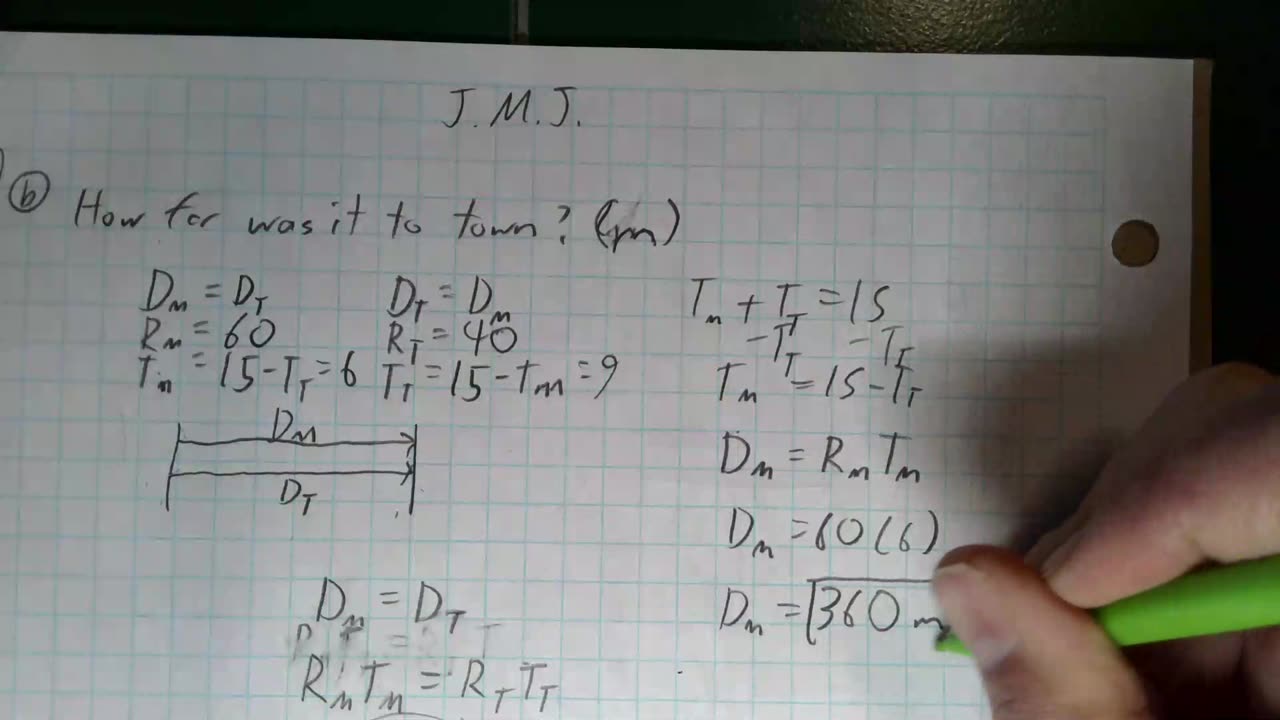 J.M.J.
b How far was it to town? (m)
D_M = D_T
R_M = 60
T_M = 15-T_T = 6
D_T = D_M
R_T = 40
T_T = 15-T_M = 9
D_M
D_T
D_M = D_T
R_M T_M = R_T T_T
T_M + T_T = 15
-T_T -T_T
T_M = 15-T_T
D_M = R_M T_M
D_M = 60(6)
D_M = 360 m